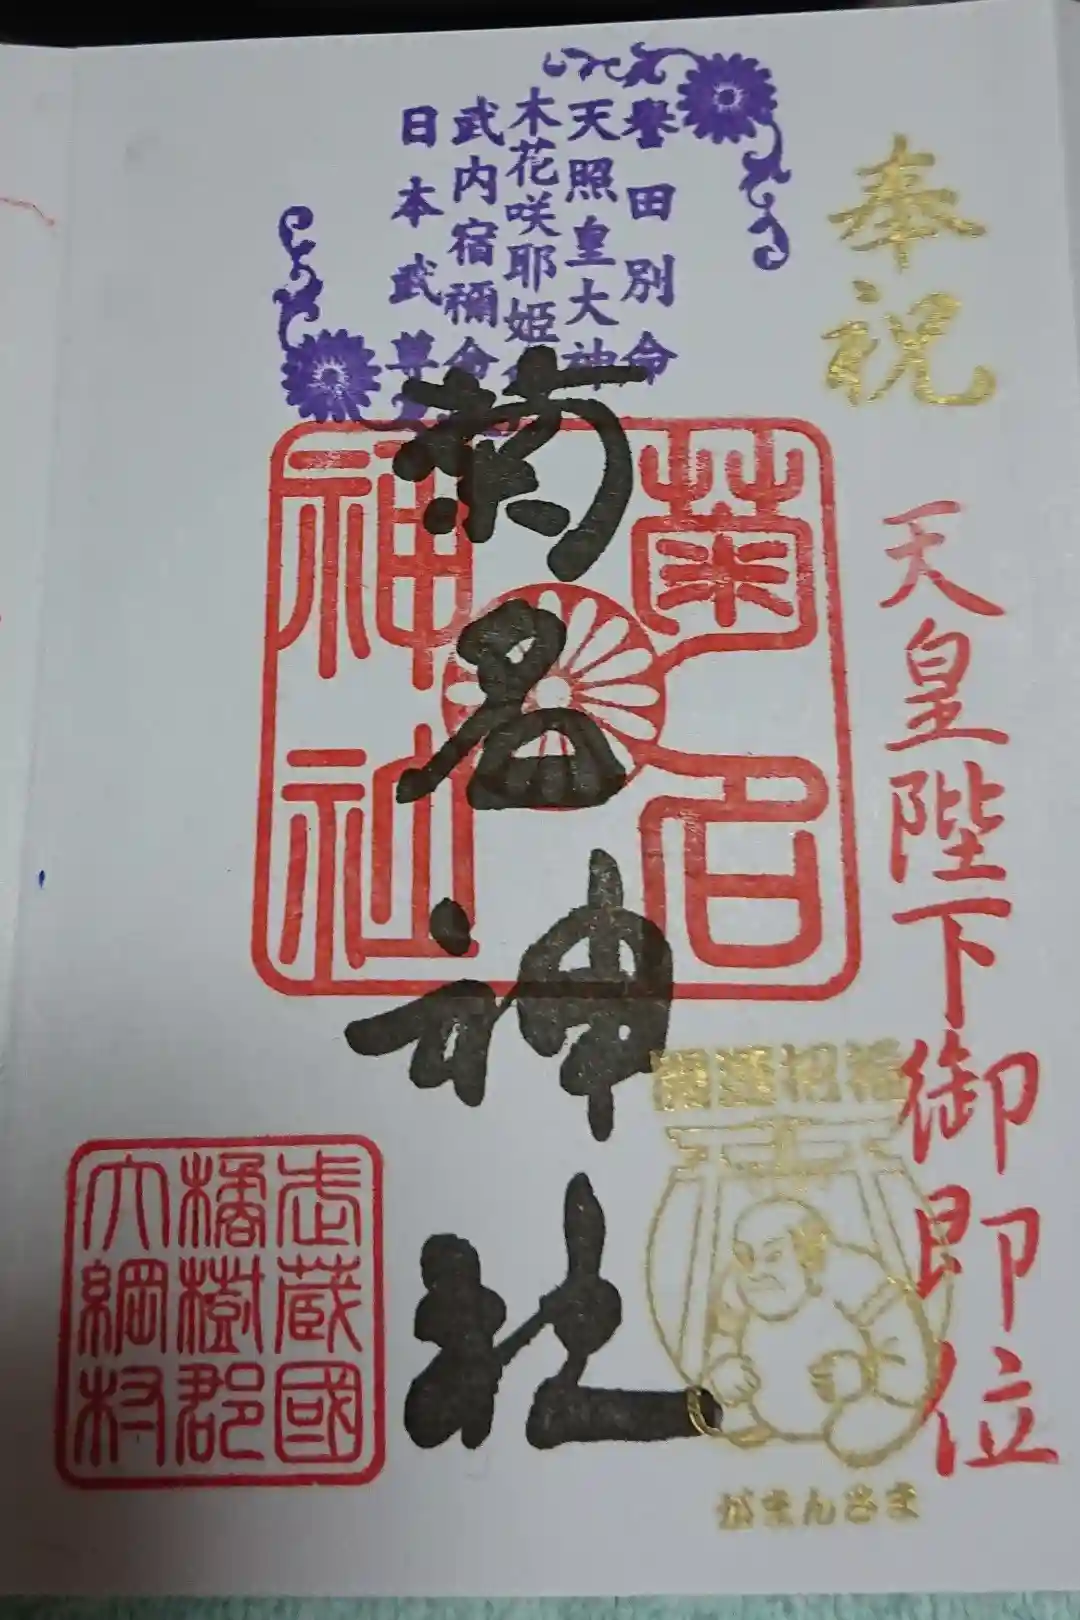 奉祝
天皇陛下御即位
誉田別命
天照皇大神
木花咲耶姫命
武内宿禰命
日本武尊
菊名
神社
菊名神社
開運招福
がまんさま
武蔵國
橘樹郡
大綱村